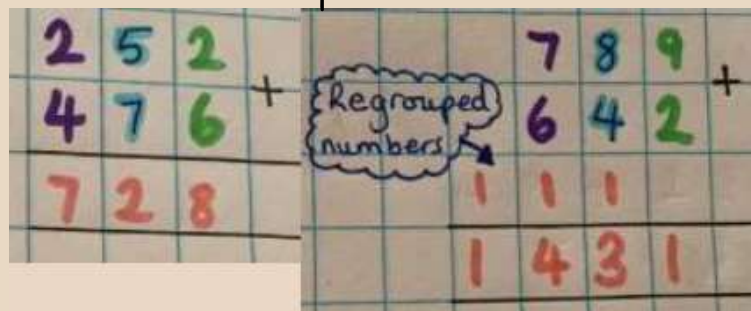 2 5 2
4 7 6 +
7 2 8
7 8 9
6 4 2 +
Regrouped
numbers
1 1 1
1 4 3 1